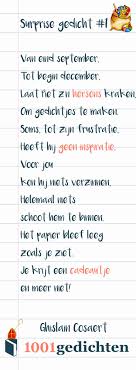 Surprise gedicht #1
Van eind september,
Tot begin december.
Laat het z'n hersens kraken,
Om gedichtjes te maken.
Soms, tot zijn frustratie,
Heeft hij geen inspiratie.
Voor jou
kon hij niets verzinnen.
Helemaal niets
schoot hem te binnen.
Het papier bleef leeg
zoals je ziet.
Je krijt een cadeautje
en meer niet!
Ghislain Cosaert
1001gedichten